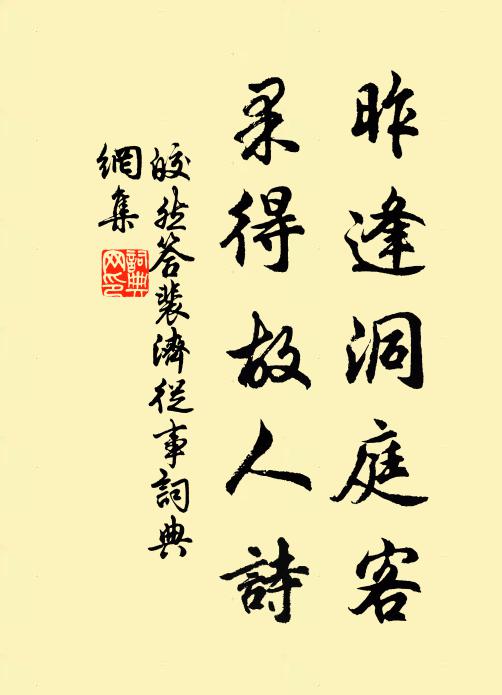 昨逢洞庭客
果得故人詩
皎然答裴濟從事詞典
網集
詞典
网印